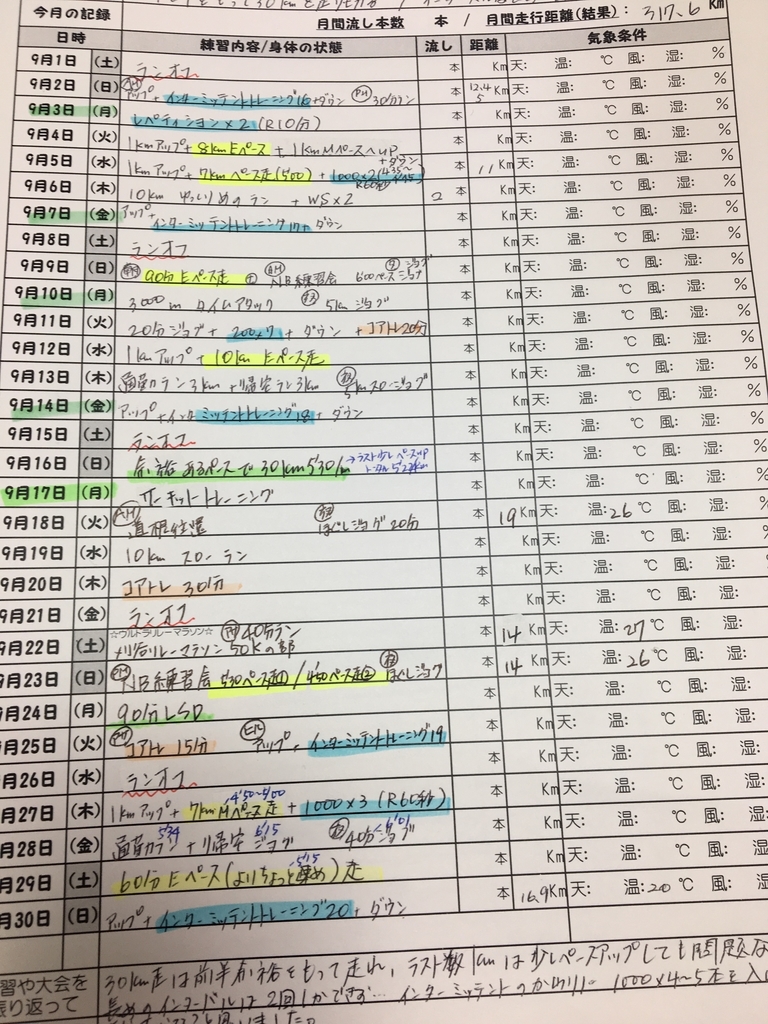 今月の記録
月間流し本数 本 / 月間走行距離(結果): 317.6 Km
日時 練習内容/身体の状態 流し 距離 気象条件
9月1日 (土) ランオフ 本 Km 天: 温: ℃ 風: 湿: %
9月2日 (日) アップ+インターミッテントトレーニング16+ダウン PM 30分ラン 本 12.45 Km 天: 温: ℃ 風: 湿: %
9月3日 (月) レペティション×2 (R10分) 本 Km 天: 温: ℃ 風: 湿: %
9月4日 (火) 1kmアップ+8km Eペース+1km MペースへUP 本 Km 天: 温: ℃ 風: 湿: %
9月5日 (水) 1kmアップ+7kmペース走(500)+1000×2 R60秒 +ダウン 本 11 Km 天: 温: ℃ 風: 湿: %
9月6日 (木) 10km ゆっくりめのラン + WS×2 2 本 Km 天: 温: ℃ 風: 湿: %
9月7日 (金) アップ+インターミッテントトレーニング17+ダウン 本 Km 天: 温: ℃ 風: 湿: %
9月8日 (土) ランオフ 本 Km 天: 温: ℃ 風: 湿: %
9月9日 (日) 90分Eペース走 AM NB練習会 600ペース ジョグ 本 Km 天: 温: ℃ 風: 湿: %
9月10日 (月) 3000m タイムアタック 夜 5km ジョグ 本 Km 天: 温: ℃ 風: 湿: %
9月11日 (火) 20分ジョグ+200×7+ダウン+コアトレ20分 本 Km 天: 温: ℃ 風: 湿: %
9月12日 (水) 1kmアップ+10km Eペース走 本 Km 天: 温: ℃ 風: 湿: %
9月13日 (木) 通勤ラン3km+帰宅ラン3km 夜 5kmスロージョグ 本 Km 天: 温: ℃ 風: 湿: %
9月14日 (金) アップ+インターミッテントトレーニング18+ダウン 本 Km 天: 温: ℃ 風: 湿: %
9月15日 (土) ランオフ 本 Km 天: 温: ℃ 風: 湿: %
9月16日 (日) 余裕あるペースで30km 5'30/km →ラスト少しペースUP 本 Km 天: 温: ℃ 風: 湿: %
9月17日 (月) サーキットトレーニング 本 Km 天: 温: ℃ 風: 湿: %
9月18日 (火) AM 夜 ほぐしジョグ20分 本 19 Km 天: 温: 26 ℃ 風: 湿: %
9月19日 (水) 10km スローラン 本 Km 天: 温: ℃ 風: 湿: %
9月20日 (木) コアトレ30分 本 Km 天: 温: ℃ 風: 湿: %
9月21日 (金) ランオフ 本 Km 天: 温: ℃ 風: 湿:
☆ウルトラリレーマラソン☆ 40分ラン
9月22日 (土) リレーマラソン50Kの部 本 14 Km 天: 温: 27 ℃ 風: 湿:
9月23日 (日) NB練習会 530ペース走 / 450ペース走 夜 ほぐしジョグ 本 14 Km 天: 温: 26 ℃ 風: 湿:
9月24日 (月) 90分LSD 本 Km 天: 温: ℃ 風: 湿:
9月25日 (火) コアトレ15分 アップ+インターミッテントトレーニング19 本 Km 天: 温: ℃ 風: 湿:
9月26日 (水) ランオフ 本 Km 天: 温: ℃ 風: 湿:
9月27日 (木) 1kmアップ+7km Mペース走+1000×3 (R60秒) 4'50~5'00 本 Km 天: 温: ℃ 風: 湿:
月28日 (金) 通勤ラン 5'34 +帰宅ジョグ 6'15 夜 40分ジョグ 6'01 本 Km 天: 温: ℃ 風: 湿:
月29日 (土) 60分Eペース(よりちょっと早め)走 5'15 本 Km 天: 温: ℃ 風:
月30日 (日) アップ+インターミッテントトレーニング20+ダウン 本 16.9 Km 天: 温: 20 ℃ 風:
習や大会を 30km走は前半余裕をもって走れ、ラスト数kmは少しペースアップしても問題な
振り返って 長めのインターバルは2回しかできず… インターミッテントのかわりに 1000×4~5本を入